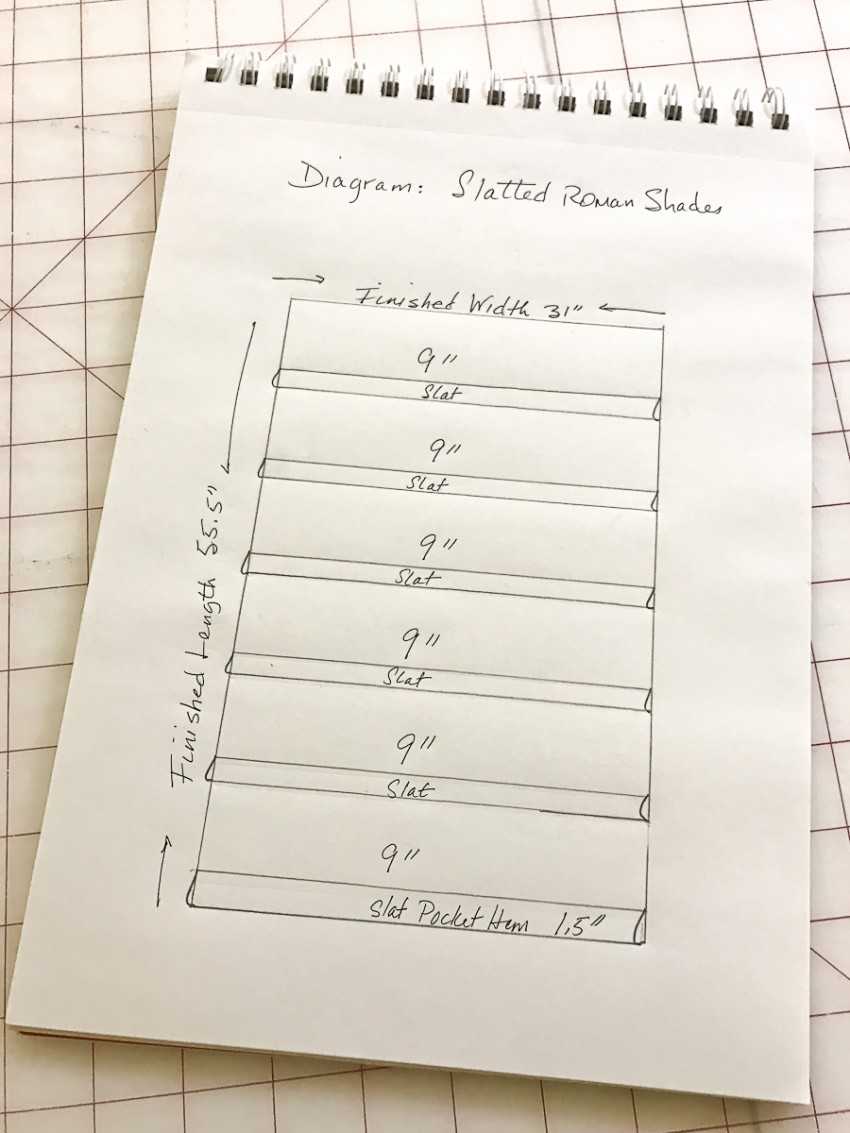 Diagram: Slatted Roman Shades
Finished Width 31"
9"
Slat
9"
Slat
9"
Slat
9"
Slat
9"
Slat
9"
Slat Pocket Hem 1.5"
Finished Length 55.5"